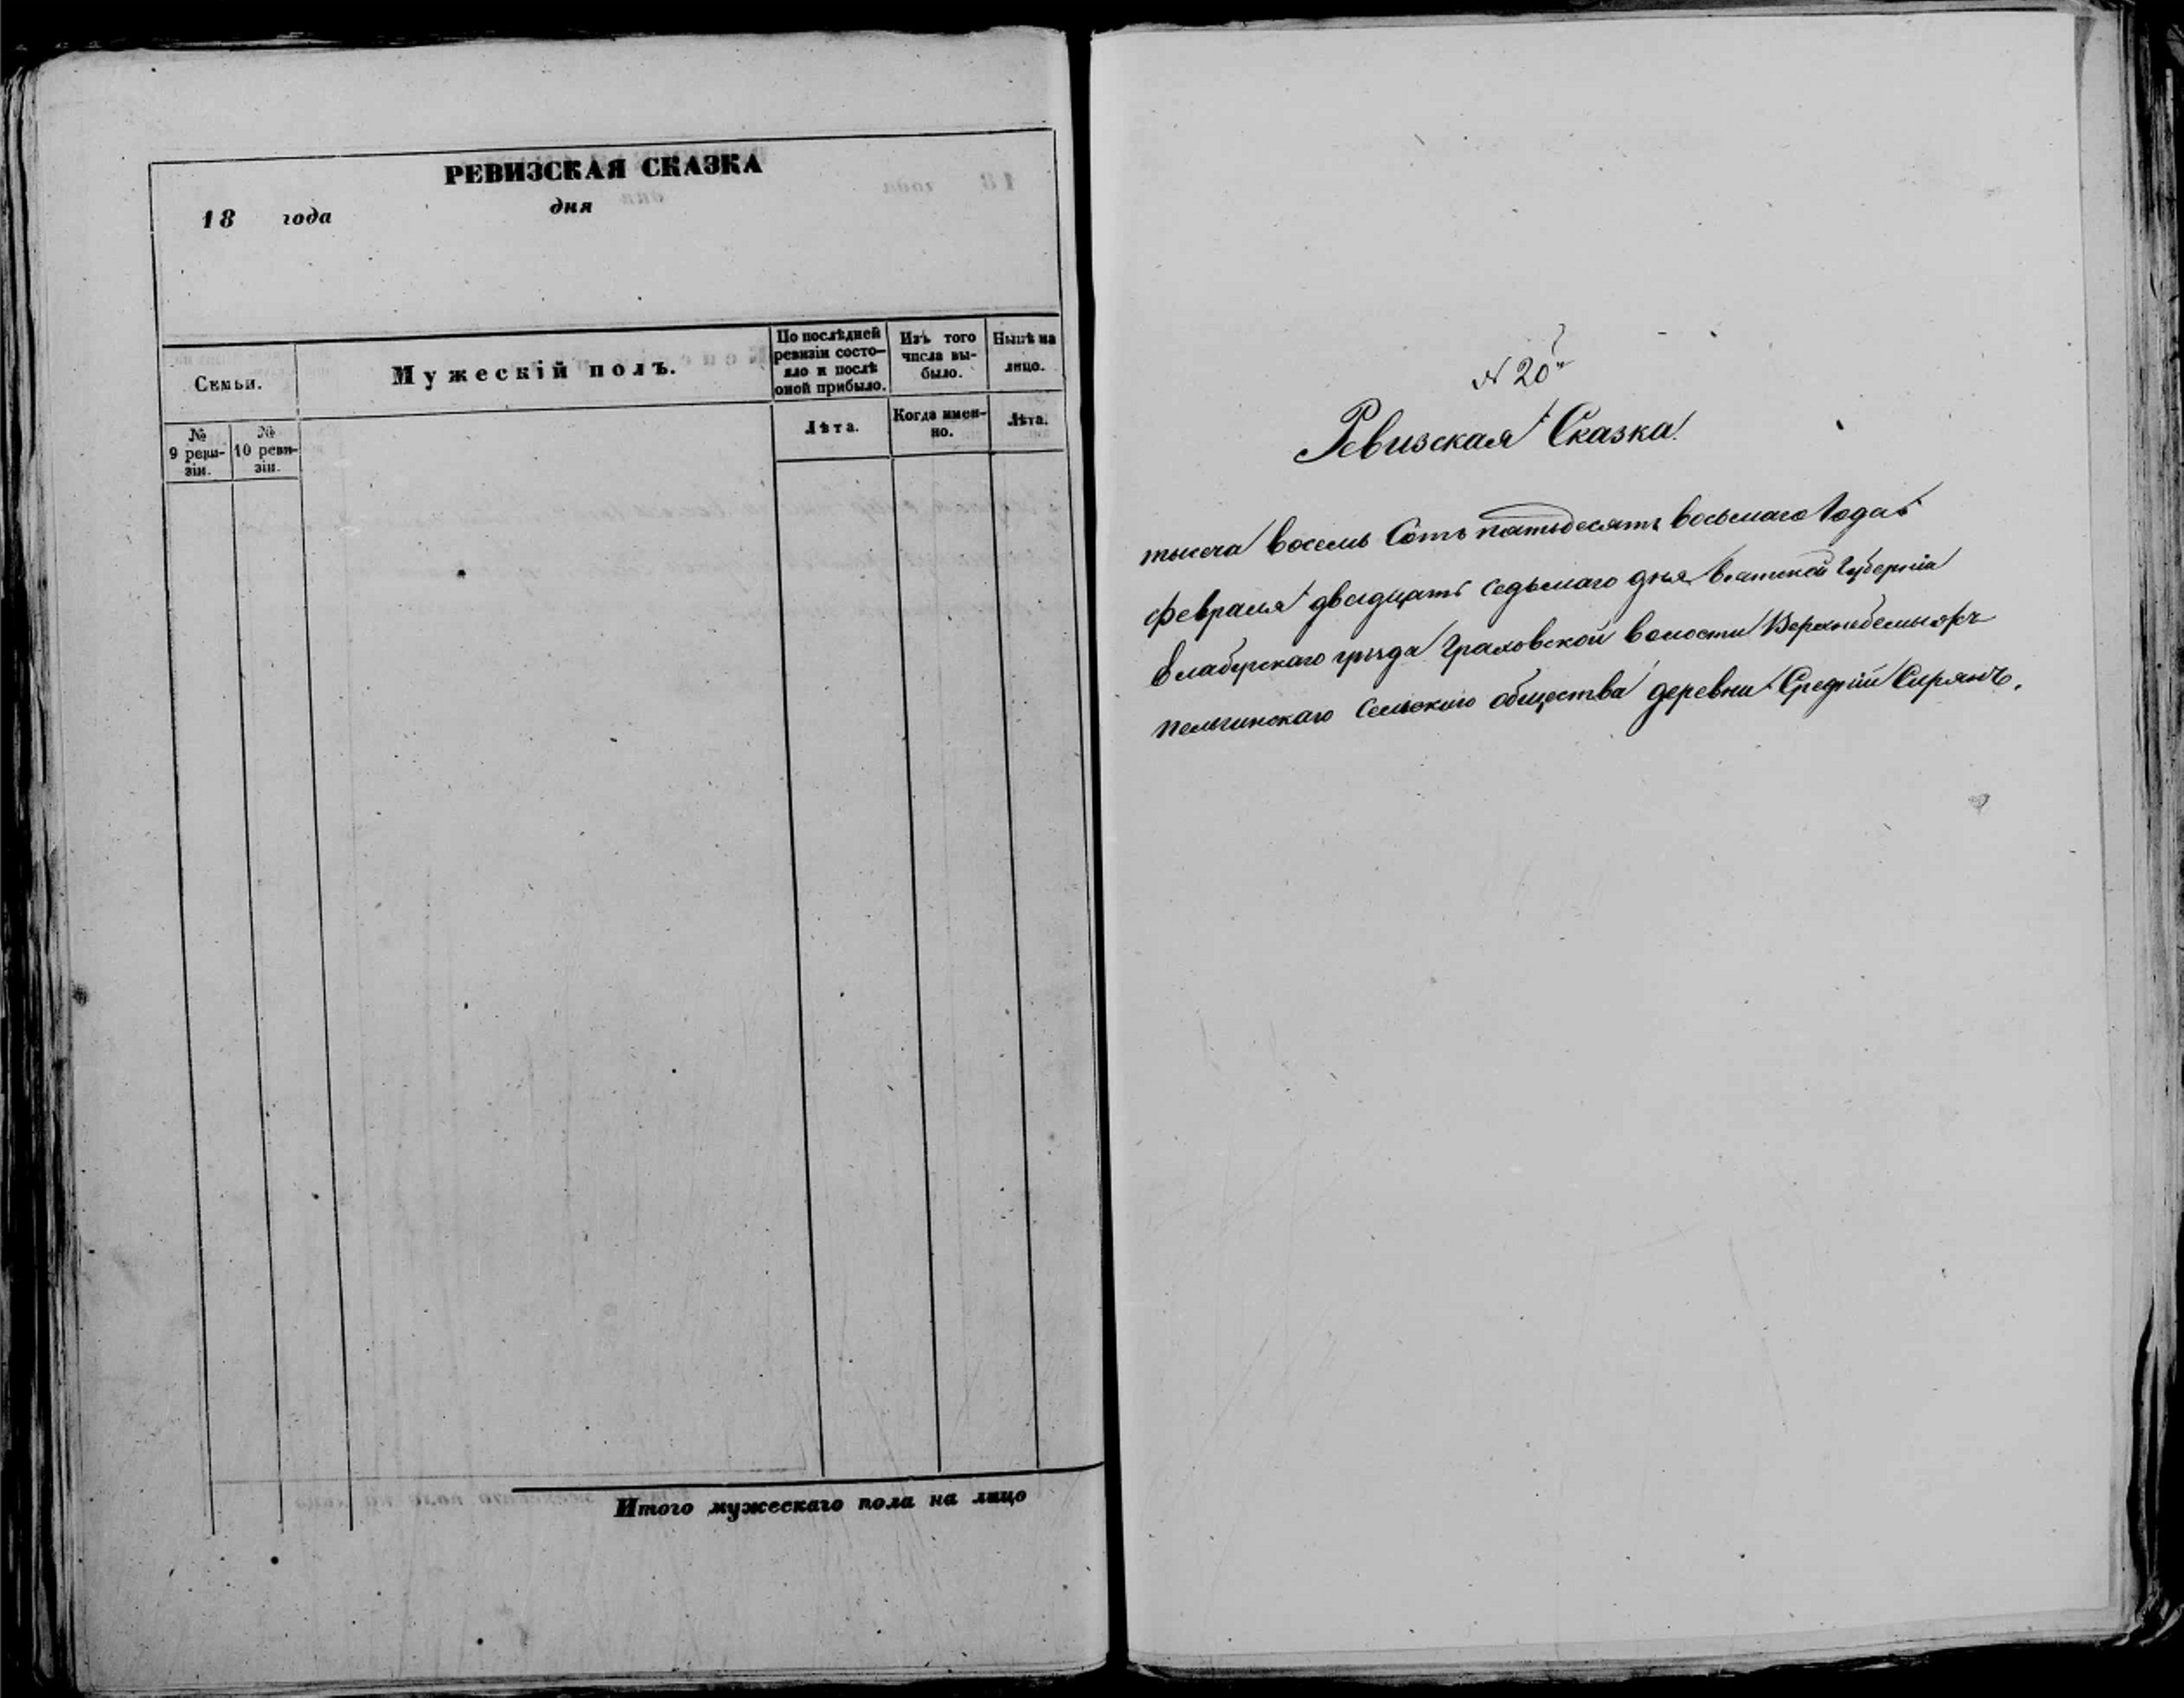 РЕВИЗСКАЯ СКАЗКА
18 года дня
Семьи.
Мужескій полъ.
По послѣдней
ревизіи состо-
яло и послѣ
оной прибыло.
Изъ того
числа вы-
было.
Нынѣ на
лицо.
№
9 реви-
зіи.
№
10 реви-
зіи.
Лѣта.
Когда имен-
но.
Лѣта.
Итого мужескаго пола на лицо
№ 20й
Ревизская Сказка.
тысеча восемь Сотъ пятьдесятъ восьмаго Года
февраля двадцать седьмаго дня Вятской Губерніи
Елабугскаго уѣзда Граховской волости
пельгинскаго Сельскаго общества деревни Средній Сырянъ.